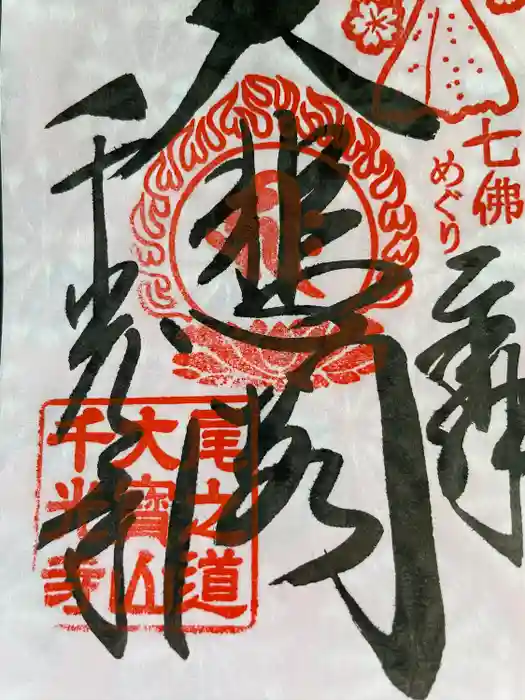 七佛
めぐり
奉拝
大悲閣
千光寺
尾之道
大寶山
千光寺